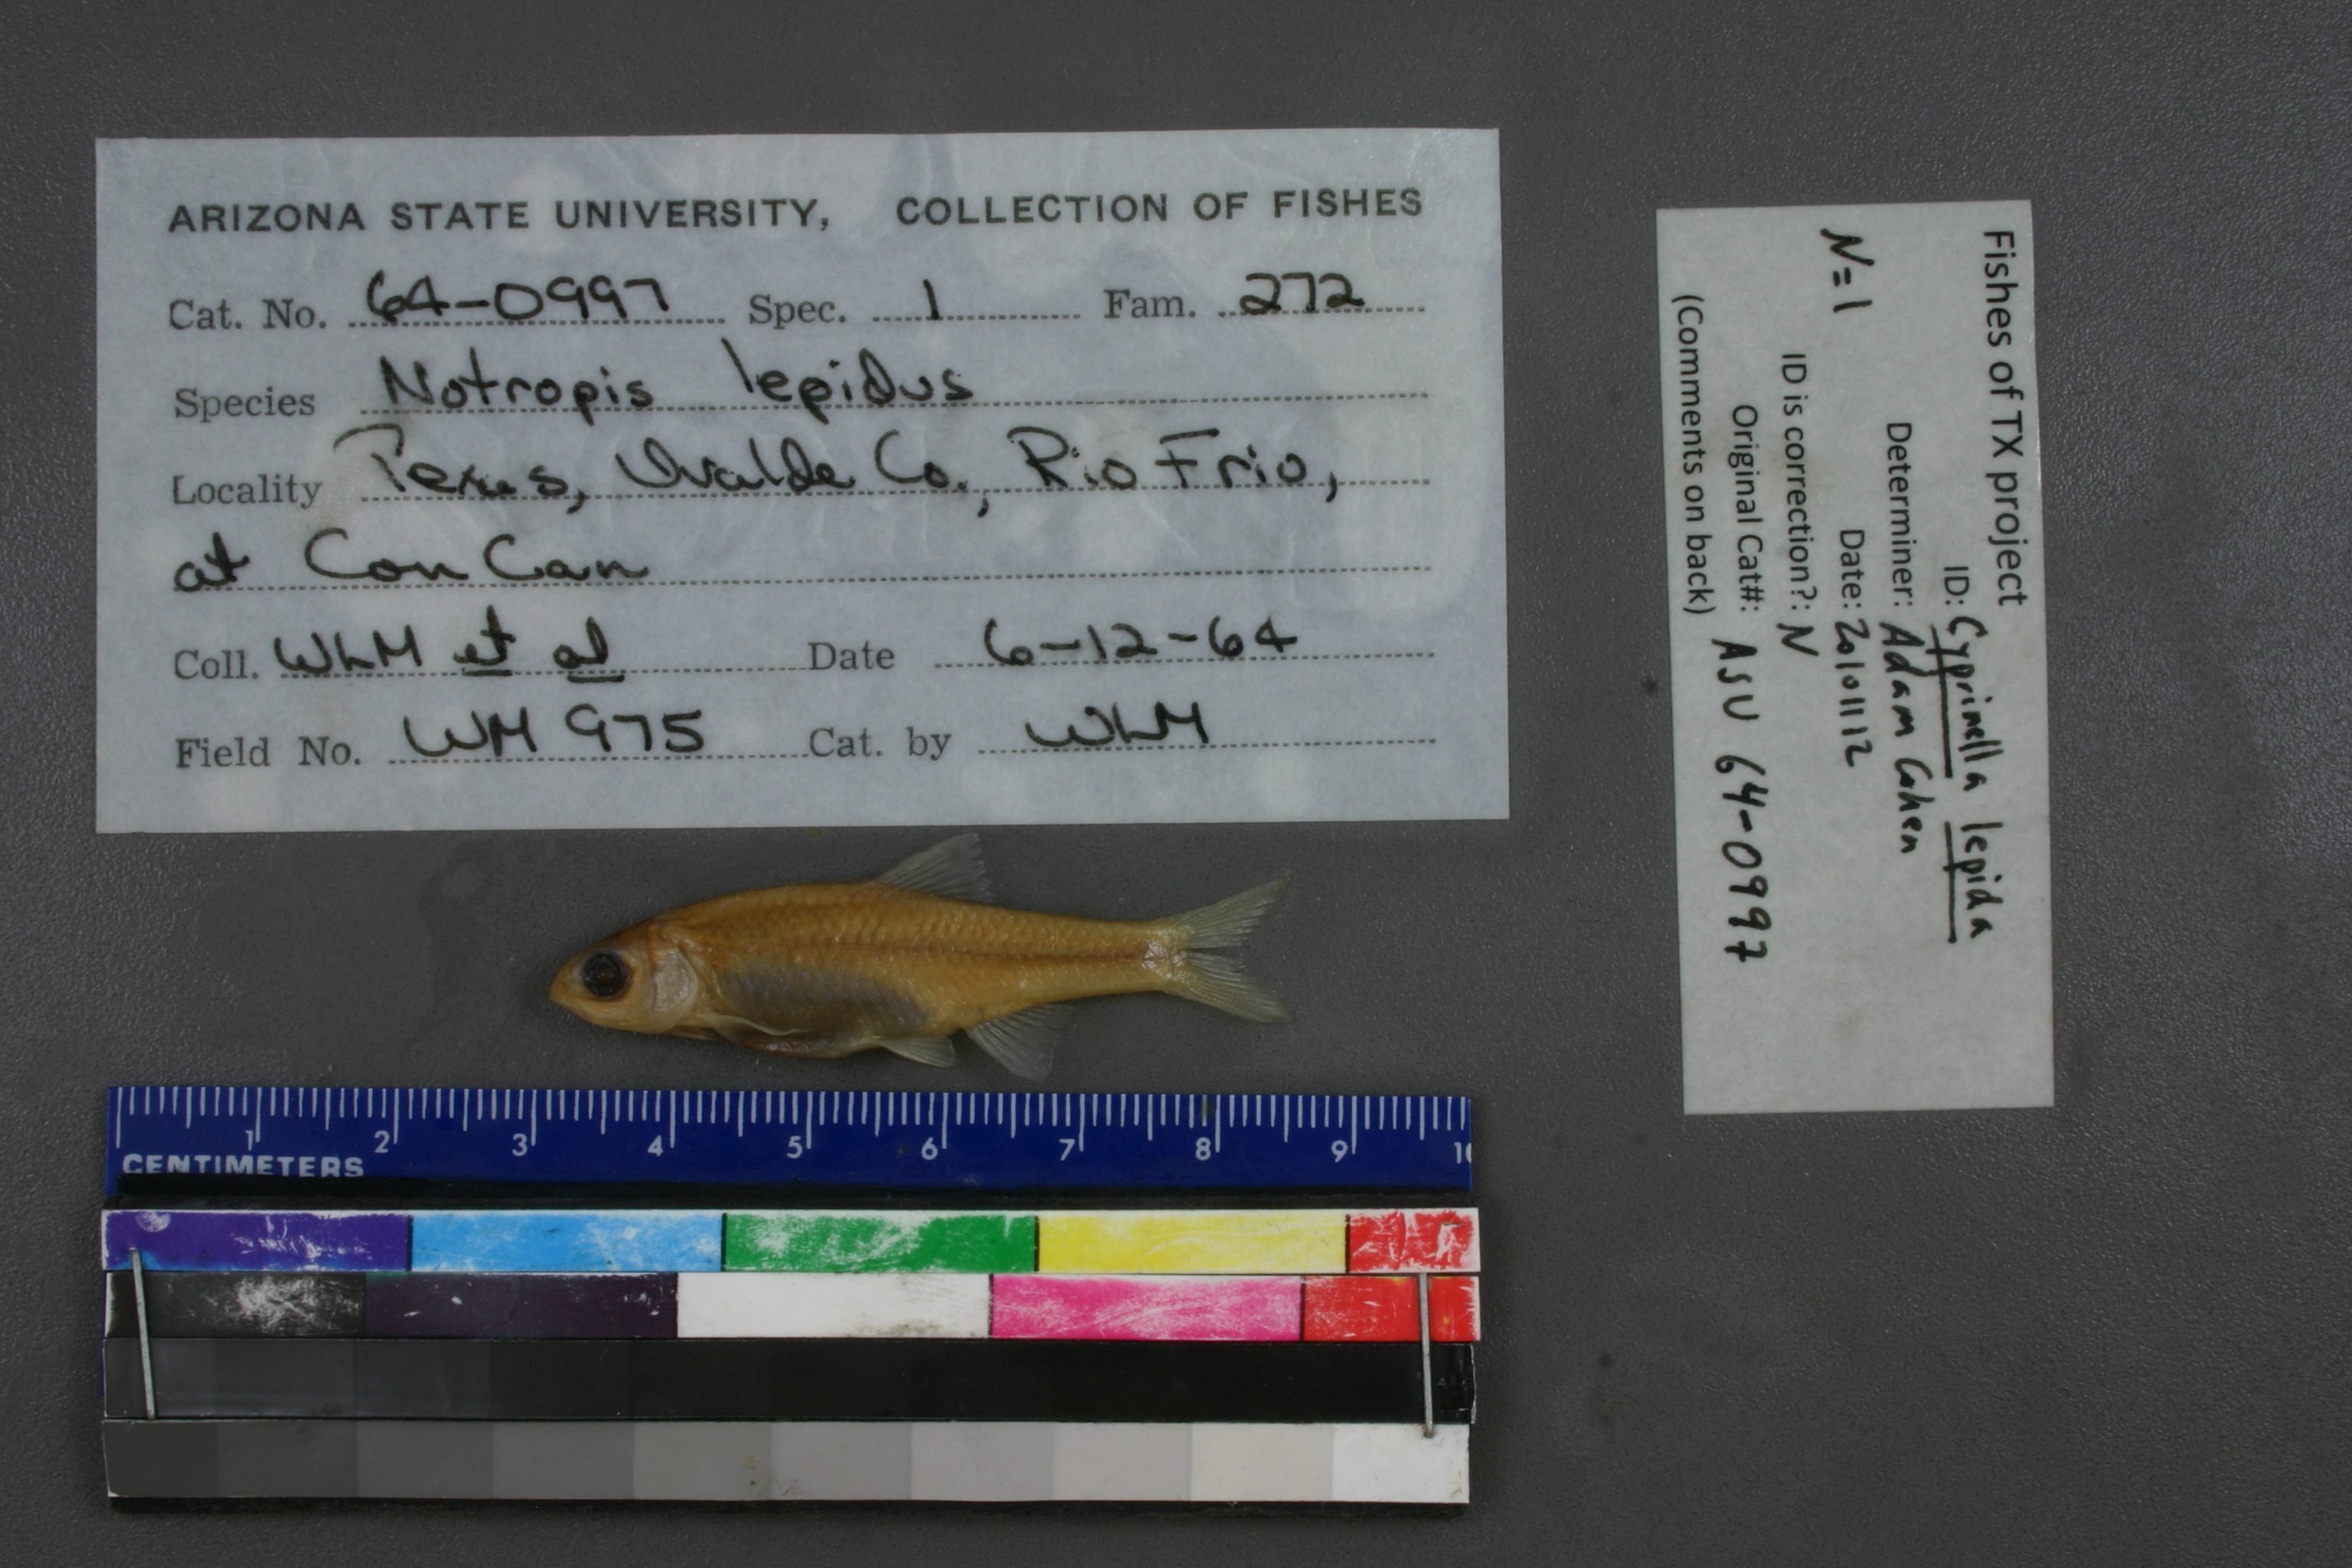 ARIZONA STATE UNIVERSITY, COLLECTION OF FISHES
Cat. No. 64-0997 Spec. 1 Fam. 272
Species Notropis lepidus
Locality Texas, Uvalde Co., Rio Frio,
at Con Can
Coll. WLM et al Date 6-12-64
Field No. WM 975 Cat. by WLM
Fishes of TX project
ID: Cyprinella lepida
Determiner: Adam Cohen
N=1 Date: 20101112
ID is correction?: N
Original Cat#: ASU 64-0997
(Comments on back)
1 2 3 4 5 6 7 8 9 10
CENTIMETERS